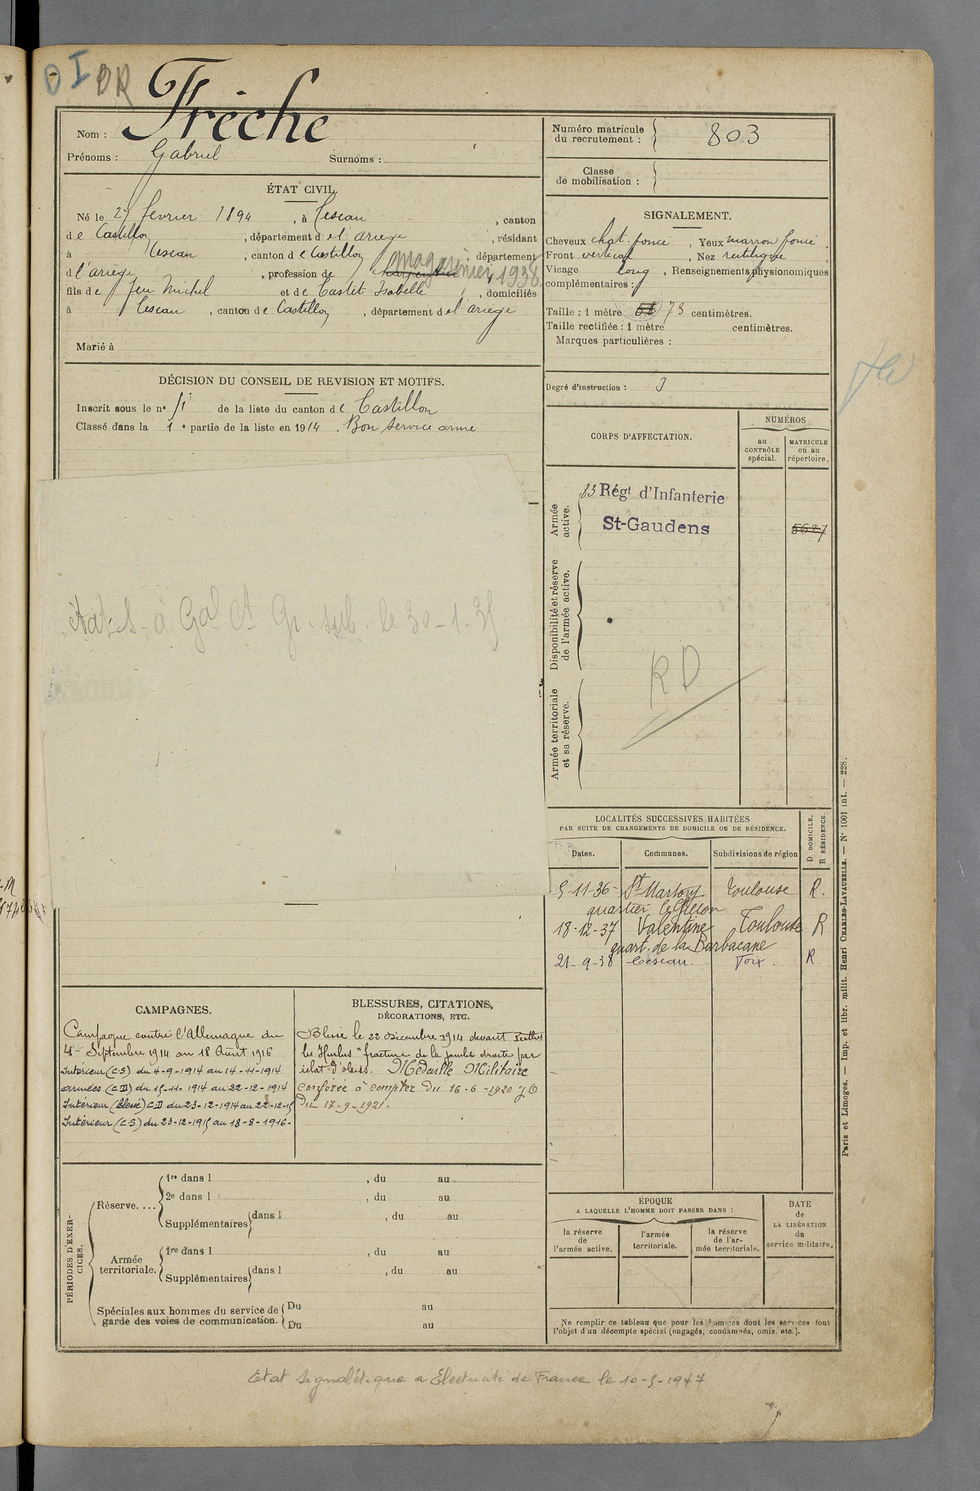 DI DR
Nom : Frèche
Prénoms : Gabriel Surnoms :
ÉTAT CIVIL.
Né le 27 février 1894, à Cescau, canton
de Castillon, département de l'ariège, résidant
à Cescau, canton de Castillon, département
d l'ariège, profession de magasinier 1938
fils de feu Michel et de Castet Isabelle, domiciliés
à Cescau, canton de Castillon, département de l'ariège
Marié à
DÉCISION DU CONSEIL DE REVISION ET MOTIFS.
Inscrit sous le nº de la liste du canton de Castillon
Classé dans la 1e partie de la liste en 1914. Bon service armé
à Gal Ct le 30-1-35
CAMPAGNES.
Campagne contre l'Allemagne du
4 Septembre 1914 au 18 Août 1916
Intérieur (CS) du 4-9-1914 au 14-11-1914
armées (CD) du 15-11-1914 au 22-12-1914
Intérieur (Blessé) CD du 23-12-1914 au 22-12-15
Intérieur (CS) du 23-12-1915 au 18-8-1916.
BLESSURES, CITATIONS,
DÉCORATIONS, ETC.
Blessé le 22 décembre 1914 devant Perthes
les Hurlus "fracture de la jambe droite par
éclat d'obus. Médaille Militaire
conférée à compter du 16-6-1920 JO
du 17-9-1921.
PÉRIODES D'EXERCICES.
Réserve....
1re dans l , du au
2e dans l , du au
Supplémentaires dans l , du au
Armée territoriale.
1re dans l , du au
Supplémentaires dans l , du au
Spéciales aux hommes du service de
garde des voies de communication.
Du au
Du au
Numéro matricule
du recrutement : 803
Classe
de mobilisation :
SIGNALEMENT.
Cheveux chat. foncé, Yeux marron foncé
Front vertical, Nez rectiligne
Visage long, Renseignements physionomiques
complémentaires :
Taille : 1 mètre 73 centimètres.
Taille rectifiée : 1 mètre centimètres.
Marques particulières :
Degré d'instruction : 3
CORPS D'AFFECTATION.
NUMÉROS
au
CONTRÔLE
spécial.
MATRICULE
ou au
répertoire.
Armée
active.
83 Régt d'Infanterie
St-Gaudens
5627
Disponibilité et réserve
de l'armée active.
RD
Armée territoriale
et sa réserve.
LOCALITÉS SUCCESSIVES HABITÉES
PAR SUITE DE CHANGEMENTS DE DOMICILE OU DE RÉSIDENCE.
Dates. Communes. Subdivisions de région
D DOMICILE,
R RÉSIDENCE.
5-11-36 St Martory Toulouse R.
quartier
18-12-37 Valentine Toulouse R
quart. de la Barbacane
21-9-38 Cescau Foix R.
ÉPOQUE
A LAQUELLE L'HOMME DOIT PASSER DANS :
la réserve
de
l'armée active.
l'armée
territoriale.
la réserve
de l'ar-
mée territoriale.
DATE
de
LA LIBÉRATION
du
service militaire.
Ne remplir ce tableau que pour les hommes dont les services font
l'objet d'un décompte spécial (engagés, condamnés, omis, etc.).
Paris et Limoges. — Imp. et libr. milit. Henri CHARLES-LAVAUZELLE. — Nº 1001 int. — 228.
Etat signalétique a Electricité de France le 10-5-1947